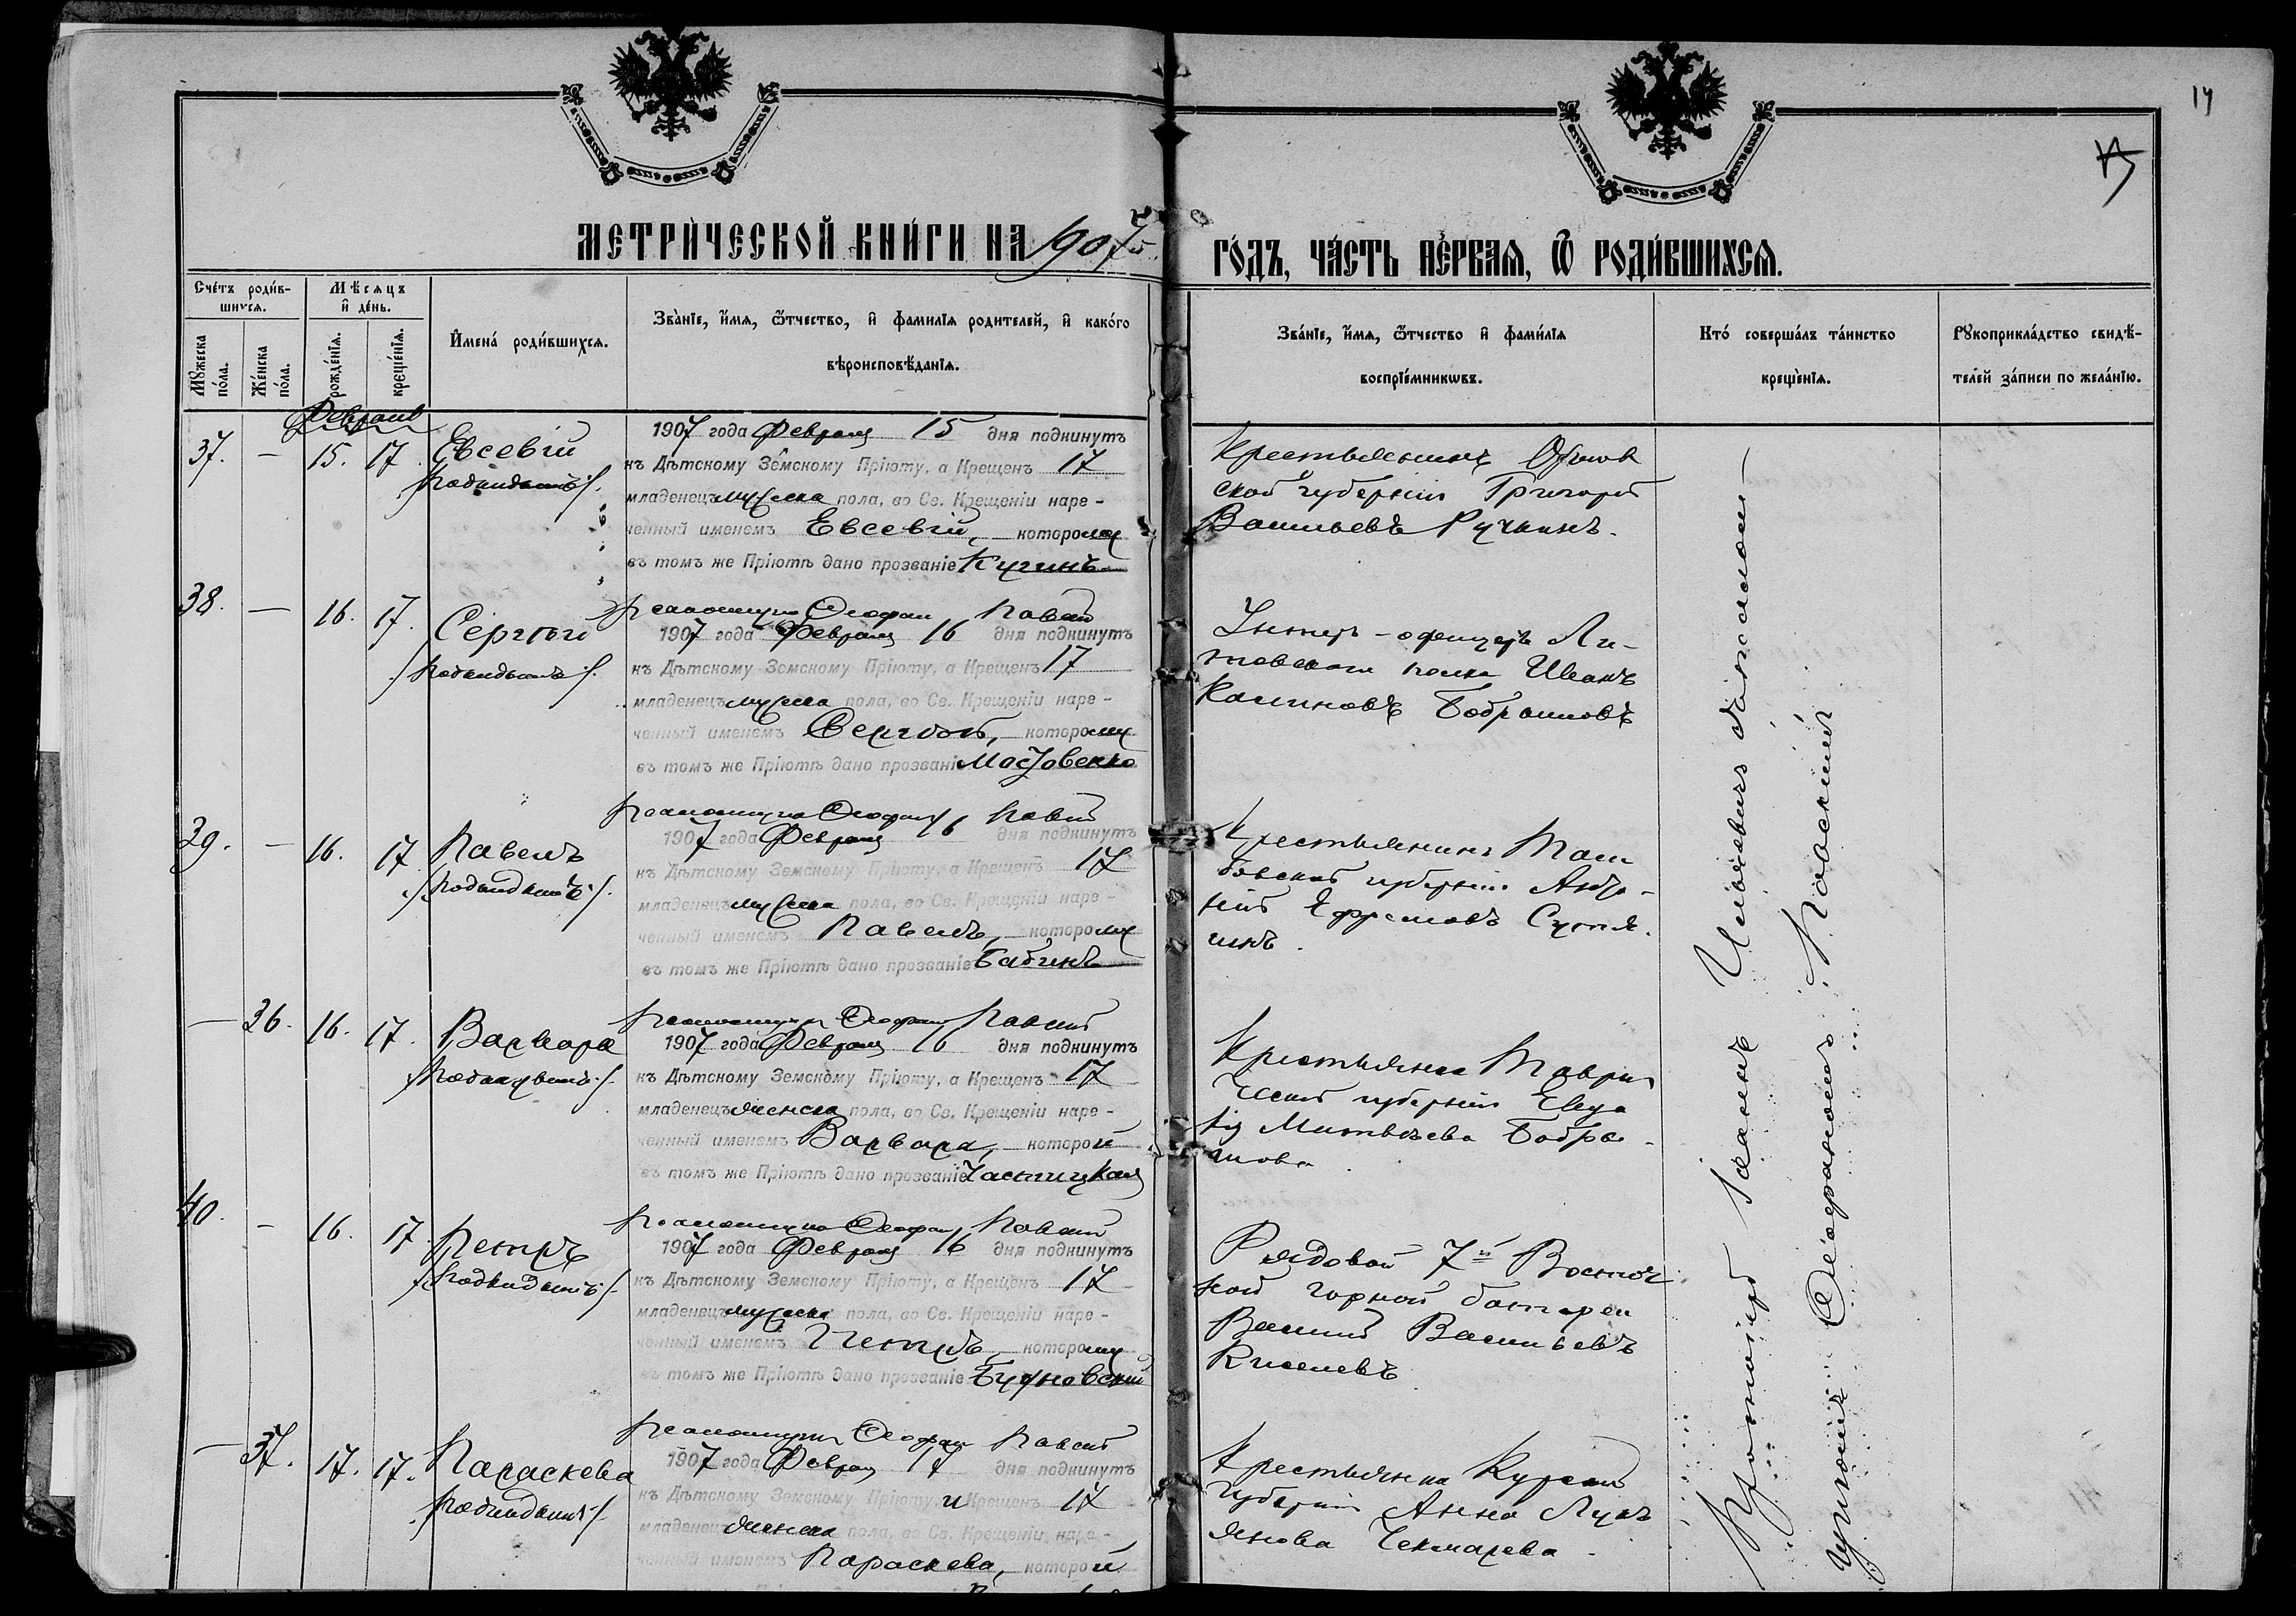 14
МЕТРИЧЕСКОЙ КНИГИ НА 1907й
ГОДЪ, ЧАСТЬ ПЕРВАЯ, Ѿ РОДИВШИХСЯ.
Счетъ родив-
шихся.
Мѣсяцъ
и день.
Мужеска пола.
Женска пола.
рожденія.
крещенія.
Имена родившихся.
Званіе, имя, ѿтчество, и фамилія родителей, и какого
вѣроисповѣданія.
Званіе, имя, ѿтчество и фамилія
воспріемниковъ.
Кто совершалъ таинство
крещенія.
Рукоприкладство свидѣ-
телей записи по желанію.
Февраль
37. — 15. 17. Евсевій
/:подкидышъ:/.
1907 года Февраля 15 дня подкинутъ
къ Дѣтскому Земскому Пріюту, а Крещенъ 17
младенецъ мужеска пола, во Св. Крещеніи наре-
ченный именемъ Евсевій, которому
въ томъ же Пріютѣ дано прозваніе Кугинъ
Крестьянинъ
ской губерніи Григорій
Васильевъ Ручкинъ.
38. — 16. 17. Сергѣй
/:подкидышъ:/.
Псаломщикъ Павскій
1907 года Февраля 16 дня подкинутъ
къ Дѣтскому Земскому Пріюту, а Крещенъ 17
младенецъ мужеска пола, во Св. Крещеніи наре-
ченный именемъ Сергѣй, которому
въ томъ же Пріютѣ дано прозваніе
Унтеръ-офицеръ Ли-
товскаго полка Иванъ
39. — 16. 17 Павелъ
/:подкидышъ:/.
Псаломщикъ Павскій
1907 года Февраля 16 дня подкинутъ
къ Дѣтскому Земскому Пріюту, а Крещенъ 17
младенецъ мужеска пола, во Св. Крещеніи наре-
ченный именемъ Павелъ, которому
въ томъ же Пріютѣ дано прозваніе Бабинъ
Крестьянинъ Там
бовской губерніи
Ефремовъ
— 36. 16. 17. Варвара
/:подкидышъ:/.
Псаломщикъ Павскій
1907 года Февраля 16 дня подкинутъ
къ Дѣтскому Земскому Пріюту, а Крещенъ 17
младенецъ женска пола, во Св. Крещеніи наре-
ченный именемъ Варвара, которой
въ томъ же Пріютѣ дано прозваніе
Крестьянка Таври
ческой губерніи
Матвѣева
40. — 16. 17. Петръ
/:подкидышъ:/.
Псаломщикъ Павскій
1907 года Февраля 16 дня подкинутъ
къ Дѣтскому Земскому Пріюту, а Крещенъ 17
младенецъ мужеска пола, во Св. Крещеніи наре-
ченный именемъ Петръ, которому
въ томъ же Пріютѣ дано прозваніе
Рядовой 7й Восточ
ной горной батареи
Василій Васильевъ
Киселевъ
— 37. 17. 17. Параскева
/:подкидышъ:/.
Псаломщикъ Павскій
1907 года Февраля 17 дня подкинутъ
къ Дѣтскому Земскому Пріюту, и Крещенъ 17
младенецъ женска пола, во Св. Крещеніи наре-
ченный именемъ Параскева, которой
Крестьянка Курской
губерніи Анна Лукь
янова Чекмарева.
Протоіерей Іоаннъ
Павскій